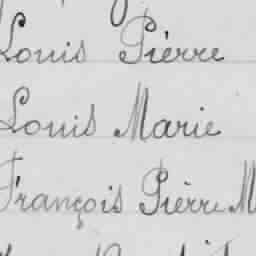 Louis Pierre
Louis Marie
François Pierre M